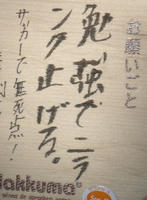 お願いごと
勉強でニラ
ンク上げる。
サッカーで無死点!
Hakkuma®